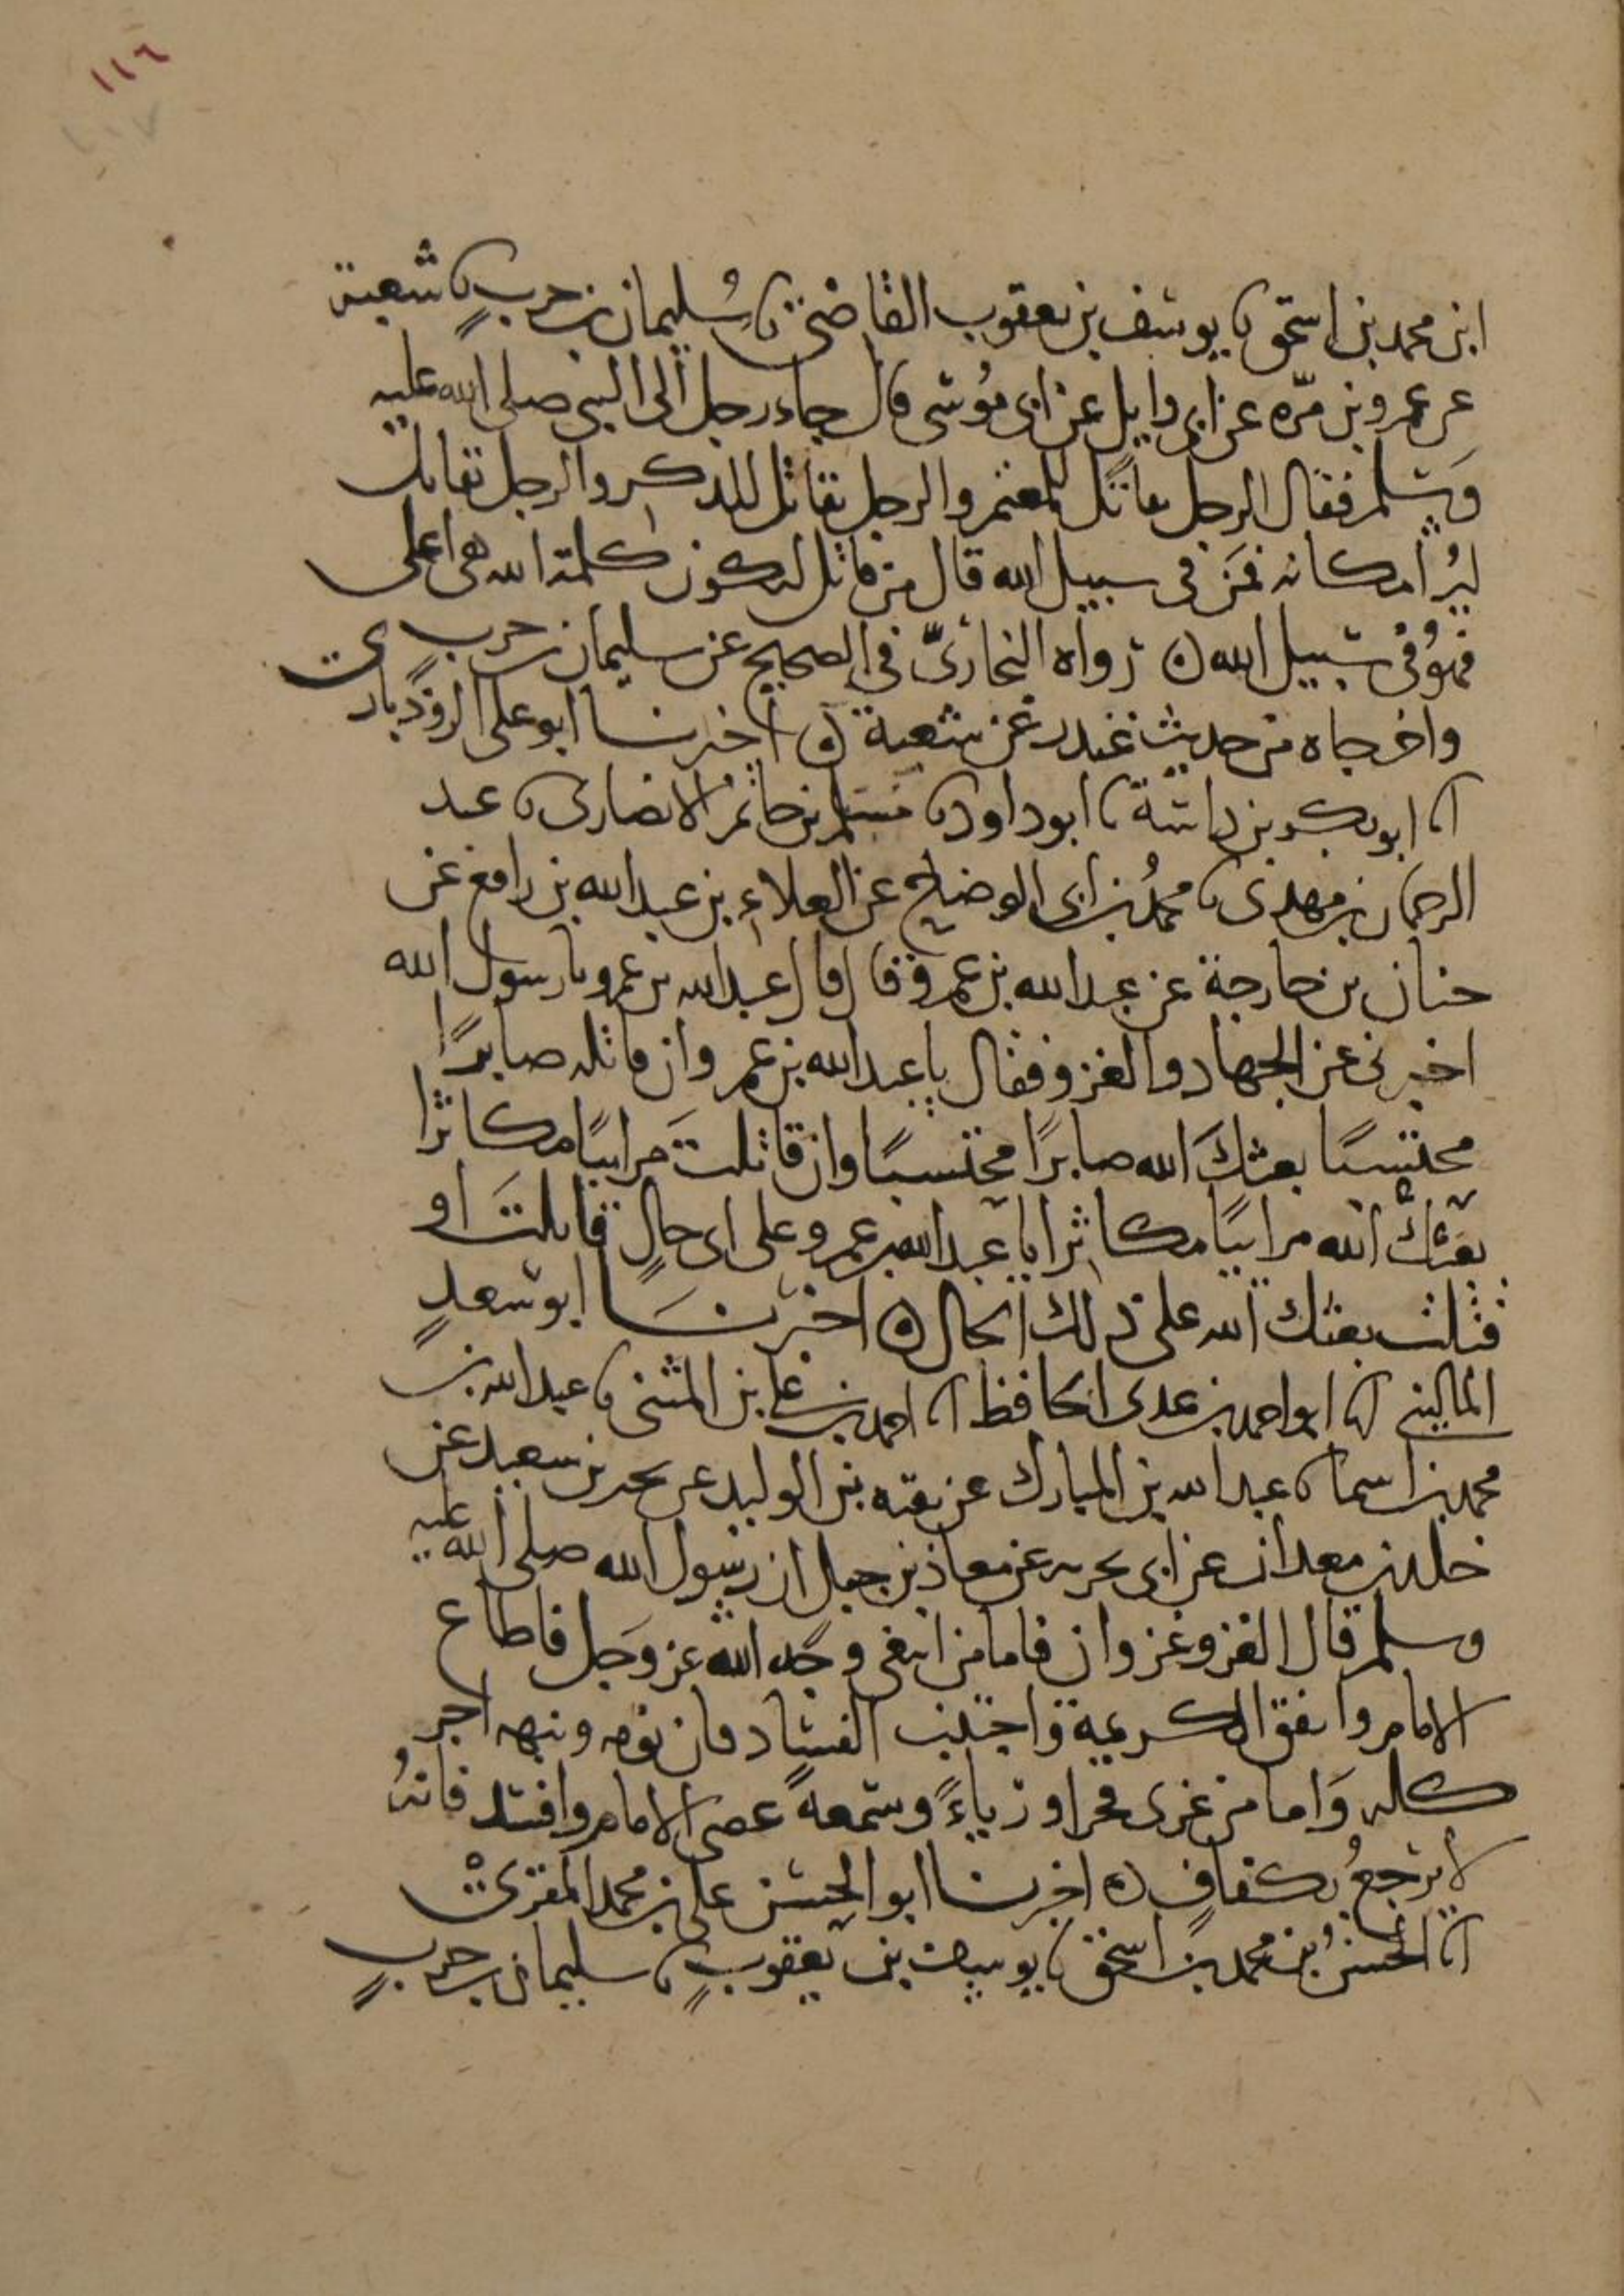 ١١٦
١١٧
ابن محمد بن اسحق ٮا يوسف بن يعقوب القاضى ٮا سُليمان بن حربٍ ٮا شعبة
عن عمرو بن مرّه عن ابى وايل عن ابى مُوسى قال جاء رجل الى النبى صلى الله عليه
وَسلم فقال الرجل يقاتل للمغنم والرجل يقاتل للذكر والرجل يقاتل
ليُرا مكانه فمَن فى سبيل الله قال من قاتل لتكون كلمة الله هى اعلى
فهوَ فى سبيل الله ه رواه البخارىّ فى الصحيح عن سليمان بن حرب
واخرجاه من حديث غندر عن شعبة ه اخبرنا ابو على الروذبارى
اٮا ابو بكر بن داسة ٮا ابو داود ٮا مسلم بن حاتم الانصارى ٮا عبد
الرحمان بن مهدى ٮا محمدُ بن ابى الوضاح عن العلاءِ بن عبد الله بن رافع عن
حنان بن خارجة عن عبد الله بن عمرو قال قال عبد الله بن عمرو يا رسول الله
اخبرنى عن الجهاد والغزو فقال يا عبد الله بن عمرو ان قاتلت صابرًا
محتسبًا بعثكَ الله صابرًا محتسبًا وان قاتلتَ مرابيًا مكاثرا
بعثكَ الله مرابيًا مكاثرا يا عبد الله بن عمرو على اى حالٍ قاتلتَ او
قتلت بعثك الله على ذلك الحال ه اخبرنَا ابو سعدٍ
المالينى اٮا ابو احمد بن عدى الحافظ اٮا احمد بن على بن المثنى ٮا عبد الله بن
محمد بن اسما ٮا عبد الله بن المبارك عن بقيه بن الوليد عن بحير بن سعيد عن
خلد بن معدان عن ابى بحريه عن معاذ بن جبل ان رسول الله صلى الله عليه
وسلم قال الغزو غزوان فاما من ابتغى وجه الله عز وجل فاطاع
الامام وانفق الكريمة واجتنب الفساد فان نومه ونبهه اجر
كله وَاما من غزى فخرا ورياءً وسمعةً عصى الامام وافسد فانهُ
لا يرجعُ بكفافٍ ه اخبرنا ابو الحسن على بن محمد المقرىْ
اٮا الحسنُ بن محمد بن اسحق ٮا يوسف بن يعقوبٍ ٮا سليمان بن حربٍ